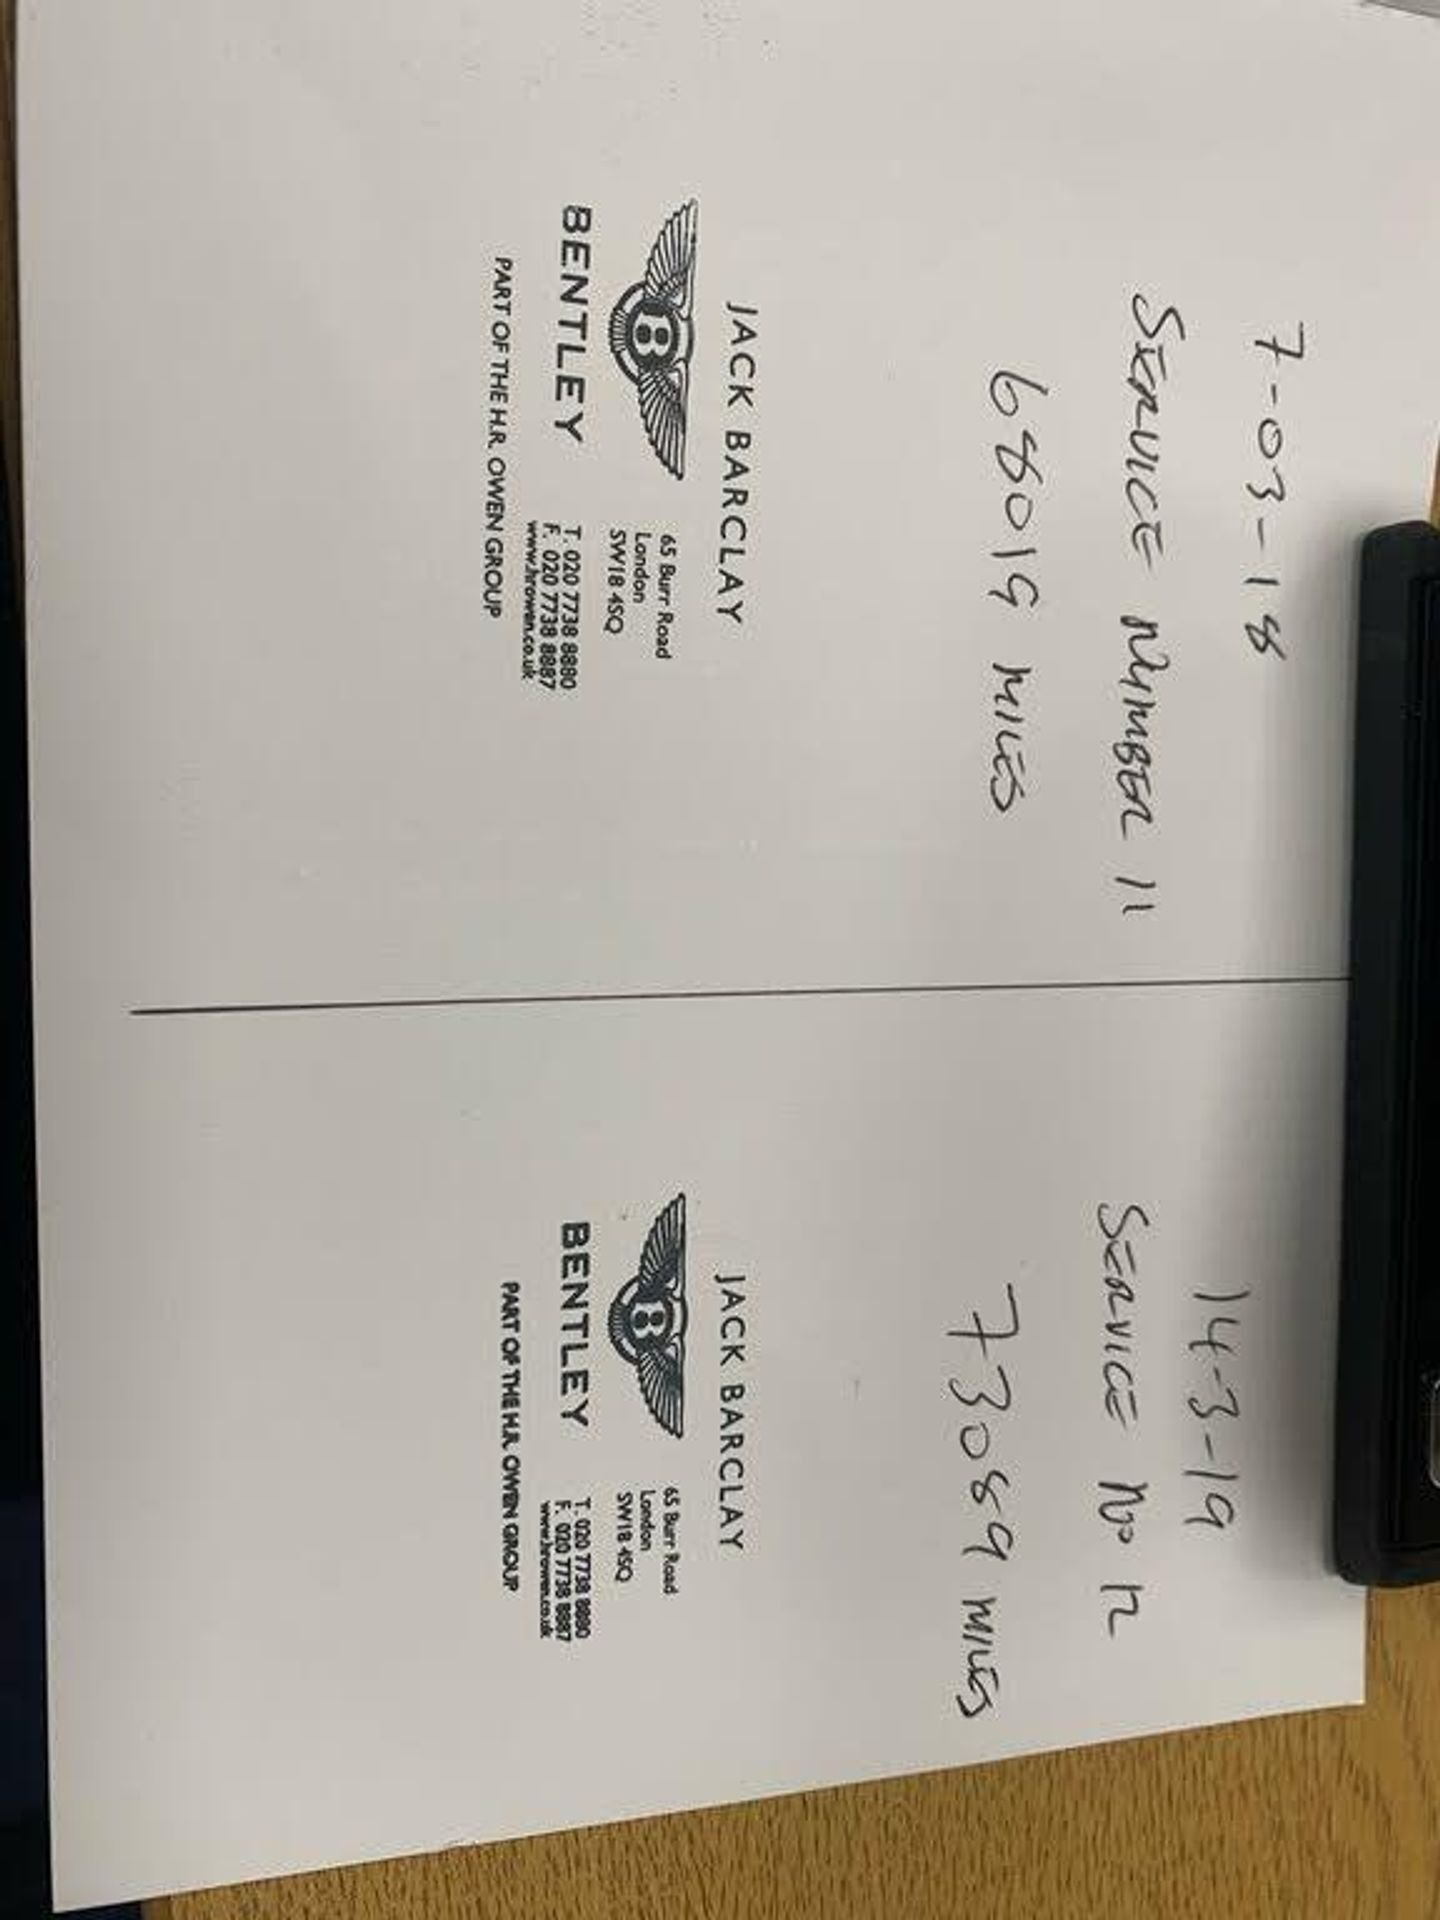 7-03-18
SERVICE NUMBER 11
68019 MILES
JACK BARCLAY
B
BENTLEY
65 Burr Road
London
SW18 4SQ
T. 020 7738 8880
F. 020 7738 8887
www.hrowen.co.uk
PART OF THE H.R. OWEN GROUP
14-3-19
SERVICE No 12
73089 MILES
JACK BARCLAY
B
BENTLEY
65 Burr Road
London
SW18 4SQ
T. 020 7738 8880
F. 020 7738 8887
www.hrowen.co.uk
PART OF THE H.R. OWEN GROUP